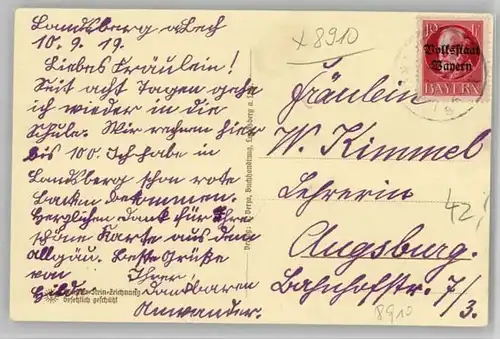 Landsberg a Lech
10.9.19.
Liebes Fräulein!
Seit acht Tagen gehe
ich wieder in die
Schule. Wir rechnen hier
bis 100. Ich habe in
Landsberg schon rote
bekommen.
Herzlichen Dank für Ihre
schöne Karte aus dem
Allgäu. Beste Grüße
von Ihrer
dankbaren
Hilde
Anwander.
Stein-Zeichnung
Gesetzlich geschützt
Verlag: Verza, Buchhandlung, Landsberg a.
x 8910
10
Volksstaat
Bayern
BAYERN
Fräulein
W. Kimmel
Lehrerin
Augsburg.
Bahnhofstr. 7/3.
42,
8910